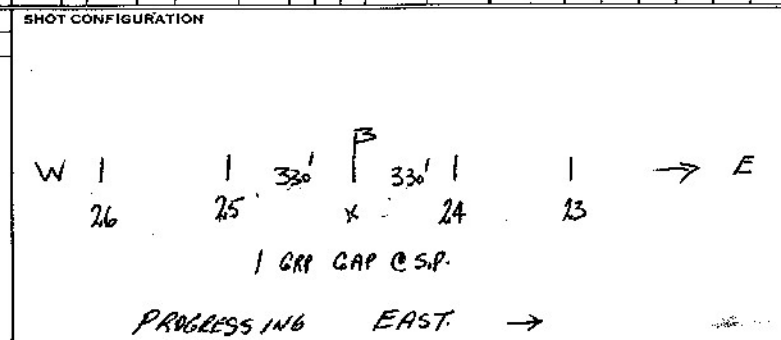 SHOT CONFIGURATION
W | | 330' | 330' | | → E
26 25 x 24 23
1 GRP GAP @ S.P.
PROGRESSING EAST. →